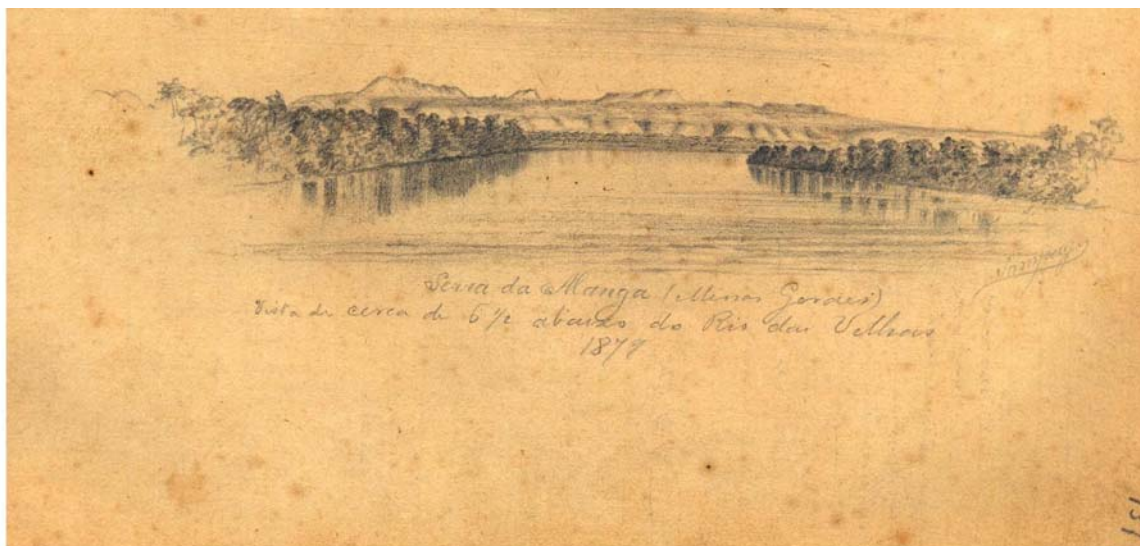 Sampaio
Serra da Manga (Minas Geraes)
Vista de cerca de 6 ½ abaixo do Rio das Velhas
1879